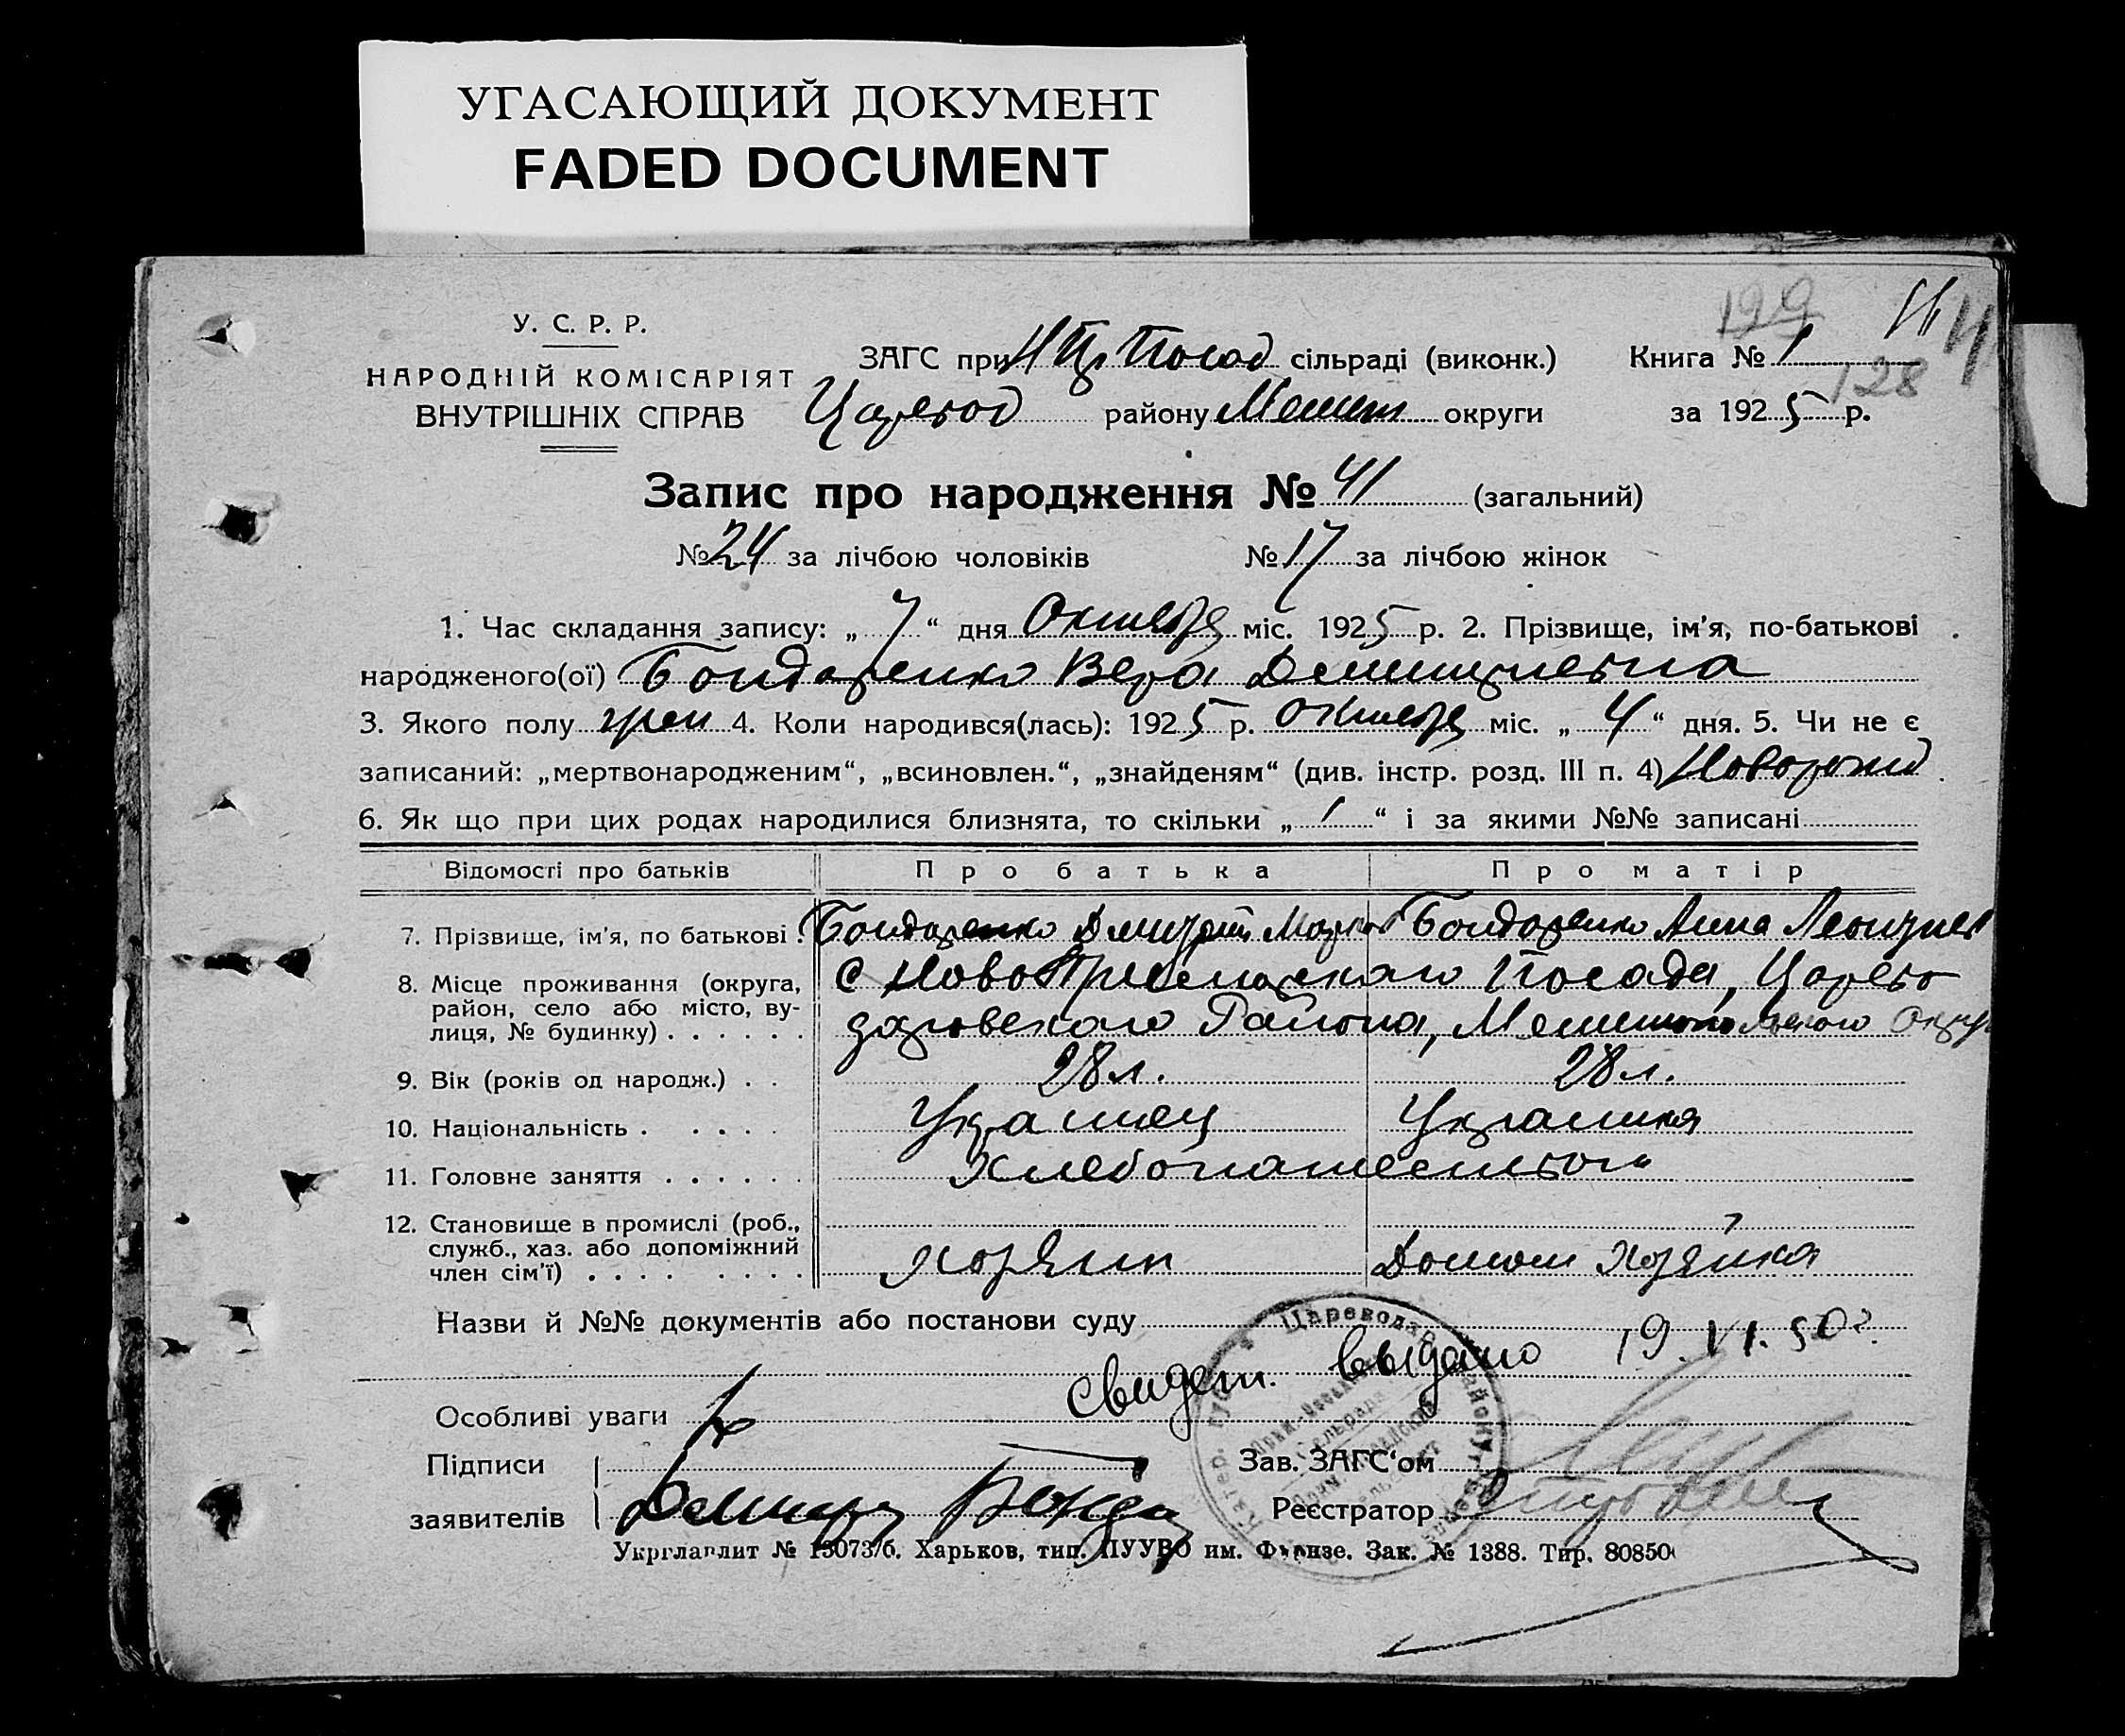 УГАСАЮЩИЙ ДОКУМЕНТ
FADED DOCUMENT
199
128
У. С. Р. Р.
НАРОДНІЙ КОМІСАРІЯТ
ВНУТРІШНІХ СПРАВ
ЗАГС при Н Пр Посад сільраді (виконк.) Книга № 1
Царевод району Мелит округи за 1925 р.
Запис про народження № 41 (загальний)
№ 24 за лічбою чоловіків № 17 за лічбою жінок
1. Час складання запису: „7“ дня Октября міс. 1925 р. 2. Прізвище, ім'я, по-батькові
народженого(ої) Бондаренко Вера Демитриевна
3. Якого полу жен 4. Коли народився(лась): 1925 р. октября міс. „4“ дня. 5. Чи не є
записаний: „мертвонародженим“, „всиновлен.“, „знайденям“ (див. інстр. розд. III п. 4)Новорожд
6. Як що при цих родах народилися близнята, то скільки „1“ і за якими №№ записані
Відомості про батьків Про батька Про матір
7. Прізвище, ім'я, по батькові . Бондаренко Дмитрий Марков Бондаренко Анна Леонтиев
8. Місце проживання (округа, район, село або місто, вулиця, № будинку) . . . . . . с Ново Посада, Царево
даровского Района, Мелитопольского Окру
9. Вік (років од народж.) . . 28 л. 28 л.
10. Національність . . . . . Украинец Украинка
11. Головне заняття . . . . . . Хлебопашество
12. Становище в промислі (роб., служб., хаз. або допоміжний член сім'ї) . . . . . . . . Хозяин Домаш Хозяйка
Назви й №№ документів або постанови суду
свидет. выдано 19.VI.50г.
Особливі уваги
Підписи
заявителів Демитр Бонда
Зав. ЗАГС'ом
Реєстратор
Укрглавлит № 13073/б. Харьков, тип. ПУУВО им. Фрунзе. Зак. № 1388. Тир. 80850